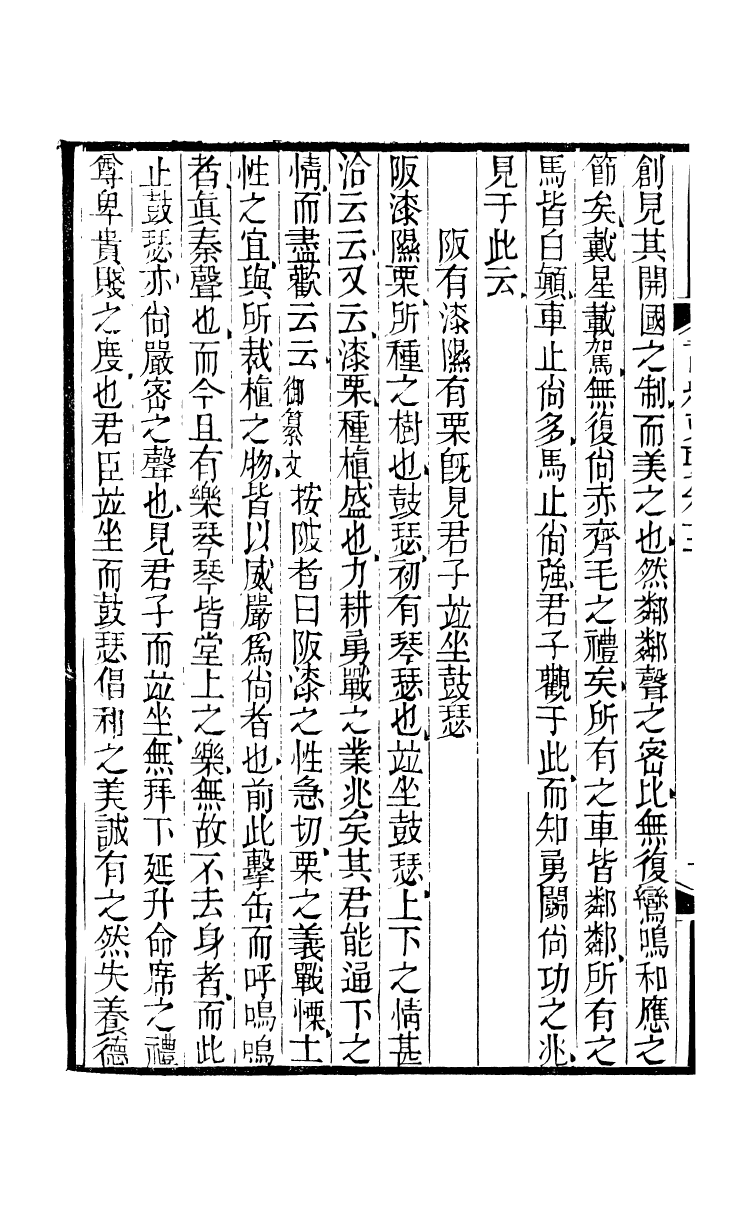 創見其開國之制而美之也然鄰鄰聲之密比無復鸞鳴和應之
節矣戴星載駕無復尚赤齊毛之禮矣所有之車皆鄰鄰所有之
馬皆白顛車止尚多馬止尚強君子觀于此而知勇鬬尚功之兆
見于此云
阪有漆隰有栗旣見君子並坐鼓瑟
阪漆隰栗所種之樹也鼓瑟初有琴瑟也並坐鼓瑟上下之情甚
洽云云又云漆栗種植盛也力耕勇戰之業兆矣其君能通下之
情而盡歡云云御纂文按陂者曰阪漆之性急切栗之義戰慄土
性之宜與所裁植之物皆以威嚴爲尚者也前此擊缶而呼嗚嗚
者眞秦聲也而今且有樂琴琴皆堂上之樂無故不去身者而此
止鼓瑟亦尚嚴密之聲也見君子而並坐無拜下延升命席之禮
尊卑貴賤之度也君臣並坐而鼓瑟倡和之美誠有之然失養德